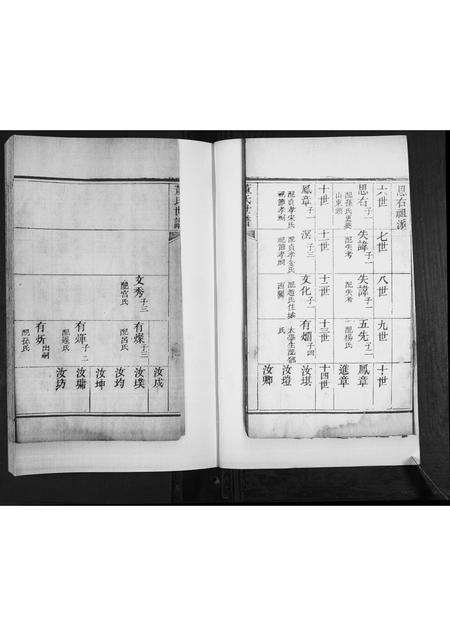 思右祖派
六世
七世
八世
九世
十世
思右 子一
配孫氏
山東
失諱 子一
配失考
失諱 子一
配失考
五先 子二
配楊氏
鳳章
進章
十世
十二世
十三世
十四世
鳳章 子一
配貞孝宋氏
節孝祠
溟 子三
配貞孝金氏
節孝祠
文化 子二
配趙氏住
西
有爛 子四
太學生配鄒
氏
汝琪
汝瑄
汝卿
董氏世譜
董氏世譜
文秀 子三
配宮氏
有燦 子三
配呂氏
有煇 子二
配遲氏
有炘 出嗣
配孫氏
汝成
汝璞
汝均
汝坤
汝墉
汝坊